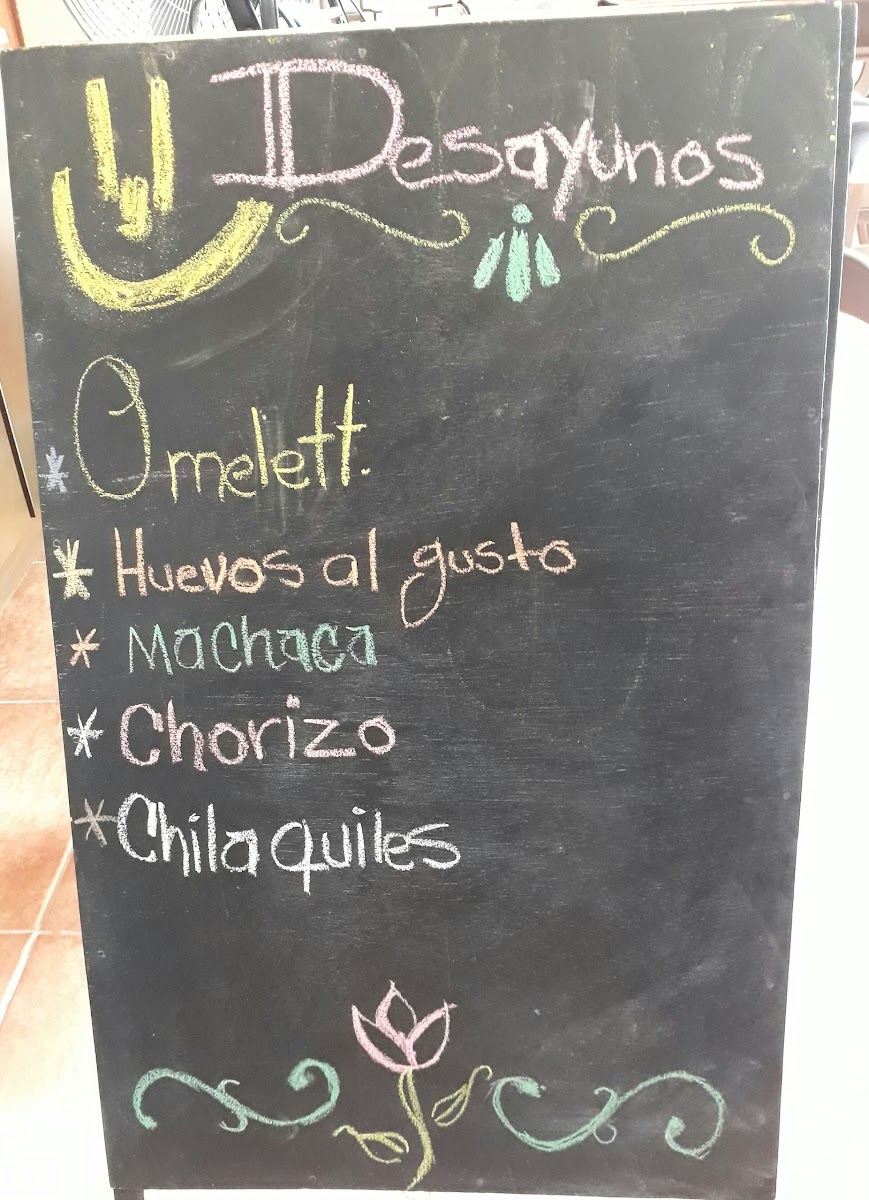 Desayunos
* Omelett.
* Huevos al gusto
* Machaca
* Chorizo
* Chilaquiles